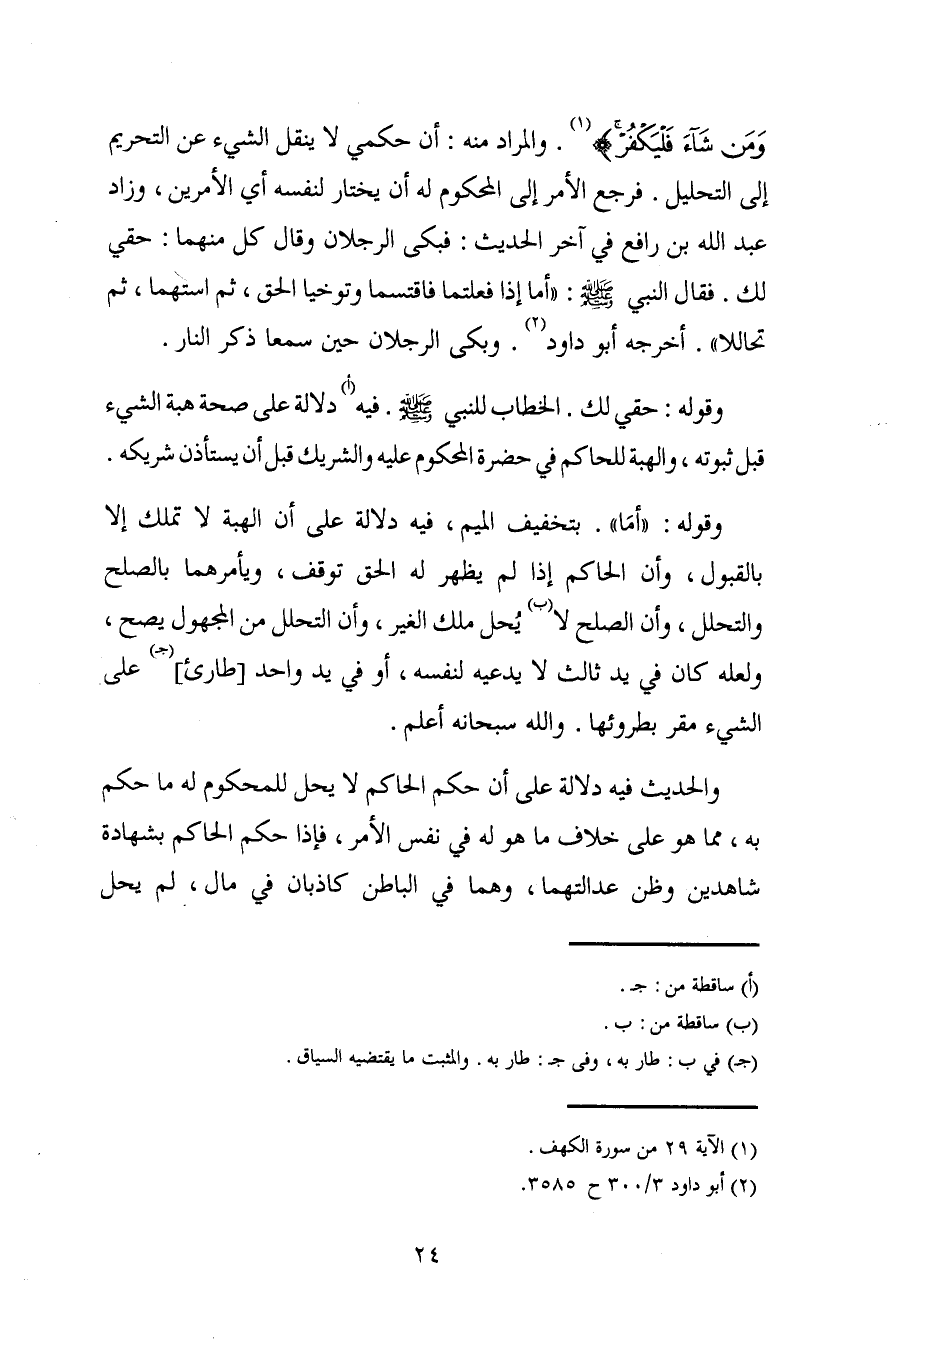 وَمَن شَآءَ فَلْيَكْفُرْ ﴾(١) . والمراد منه : أن حكمي لا ينقل الشيء عن التحريم
إلى التحليل . فرجع الأمر إلى المحكوم له أن يختار لنفسه أي الأمرين ، وزاد
عبد الله بن رافع في آخر الحديث : فبكى الرجلان وقال كل منهما : حقي
لك . فقال النبي ﷺ : «أما إذا فعلتما فاقتسما وتوخيا الحق ، ثم استهما ، ثم
تحاللا» . أخرجه أبو داود(٢) . وبكى الرجلان حين سمعا ذكر النار .
وقوله : حقي لك . الخطاب للنبي ﷺ . فيه(أ) دلالة على صحة هبة الشيء
قبل ثبوته ، والهبة للحاكم في حضرة المحكوم عليه والشريك قبل أن يستأذن شريكه .
وقوله : «أمَا» . بتخفيف الميم ، فيه دلالة على أن الهبة لا تملك إلا
بالقبول ، وأن الحاكم إذا لم يظهر له الحق توقف ، ويأمرهما بالصلح
والتحلل ، وأن الصلح لا(ب) يُحل ملك الغير ، وأن التحلل من المجهول يصح ،
ولعله كان في يد ثالث لا يدعيه لنفسه ، أو في يد واحد [طارئ](جـ) على
الشيء مقر بطروئها . والله سبحانه أعلم .
والحديث فيه دلالة على أن حكم الحاكم لا يحل للمحكوم له ما حكم
به ، مما هو على خلاف ما هو له في نفس الأمر ، فإذا حكم الحاكم بشهادة
شاهدين وظن عدالتهما ، وهما في الباطن كاذبان في مال ، لم يحل
(أ) ساقطة من : جـ .
(ب) ساقطة من : ب .
(جـ) في ب : طار به ، وفى جـ : طار به . والمثبت ما يقتضيه السياق .
(١) الآية ٢٩ من سورة الكهف .
(٢) أبو داود ٣/ ٣٠٠ ح ٣٥٨٥.
٢٤